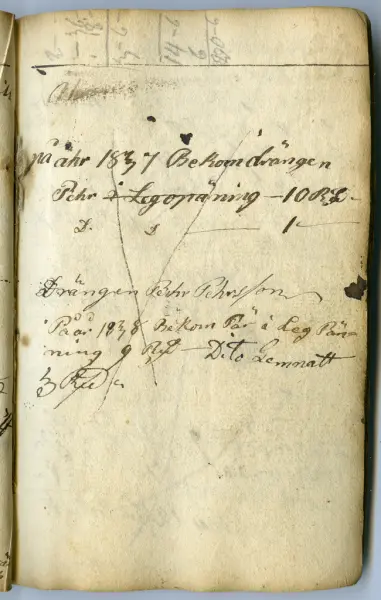 på åhr 1837 Bekom drängen
Pehr i Legopäning — 10 Rd.
D. D — 1
Drängen Pehr Pehrsson
På år 1838 Bekom Pär i Leg Pän-
ning 9 Rd — Dito Lemnatt
3 Rd